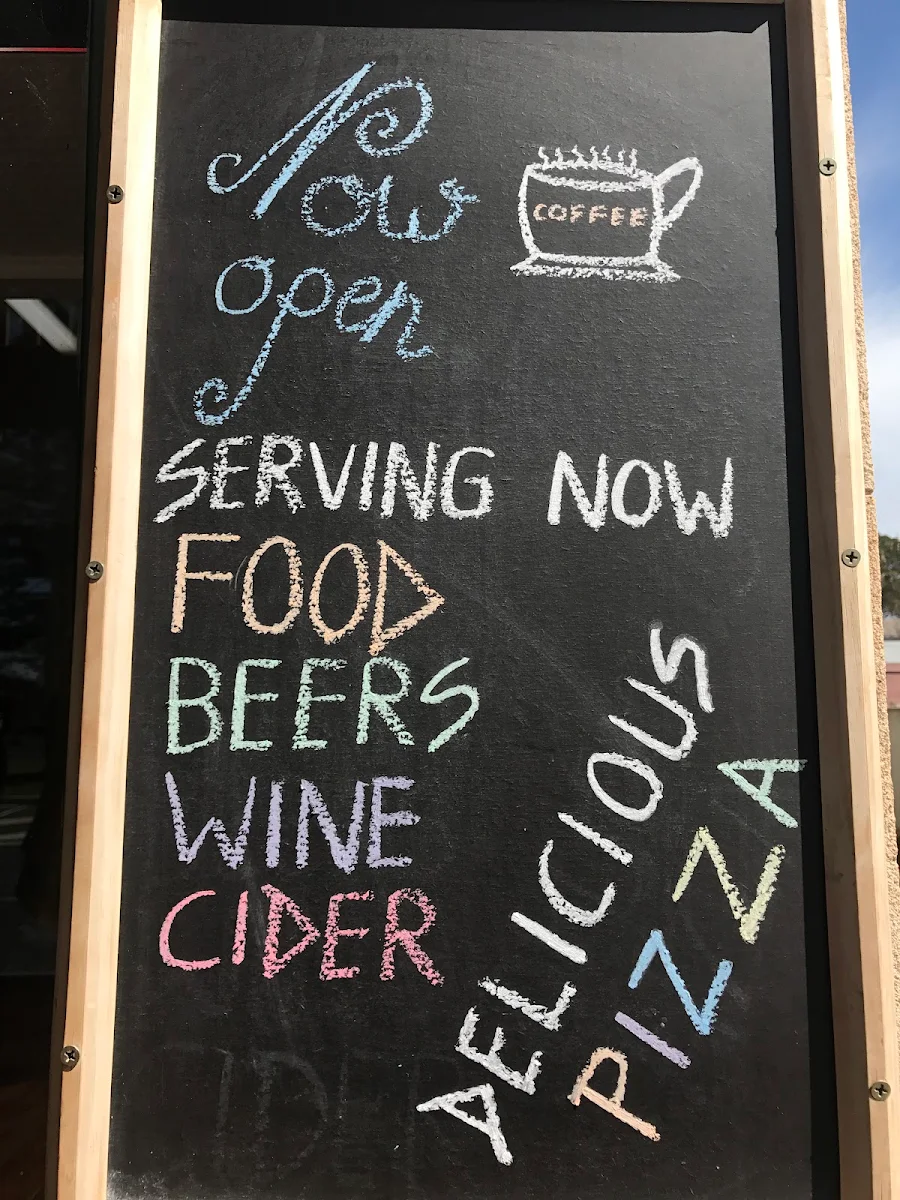 Now
open
COFFEE
SERVING NOW
FOOD
BEERS
WINE
CIDER
DELICIOUS
PIZZA